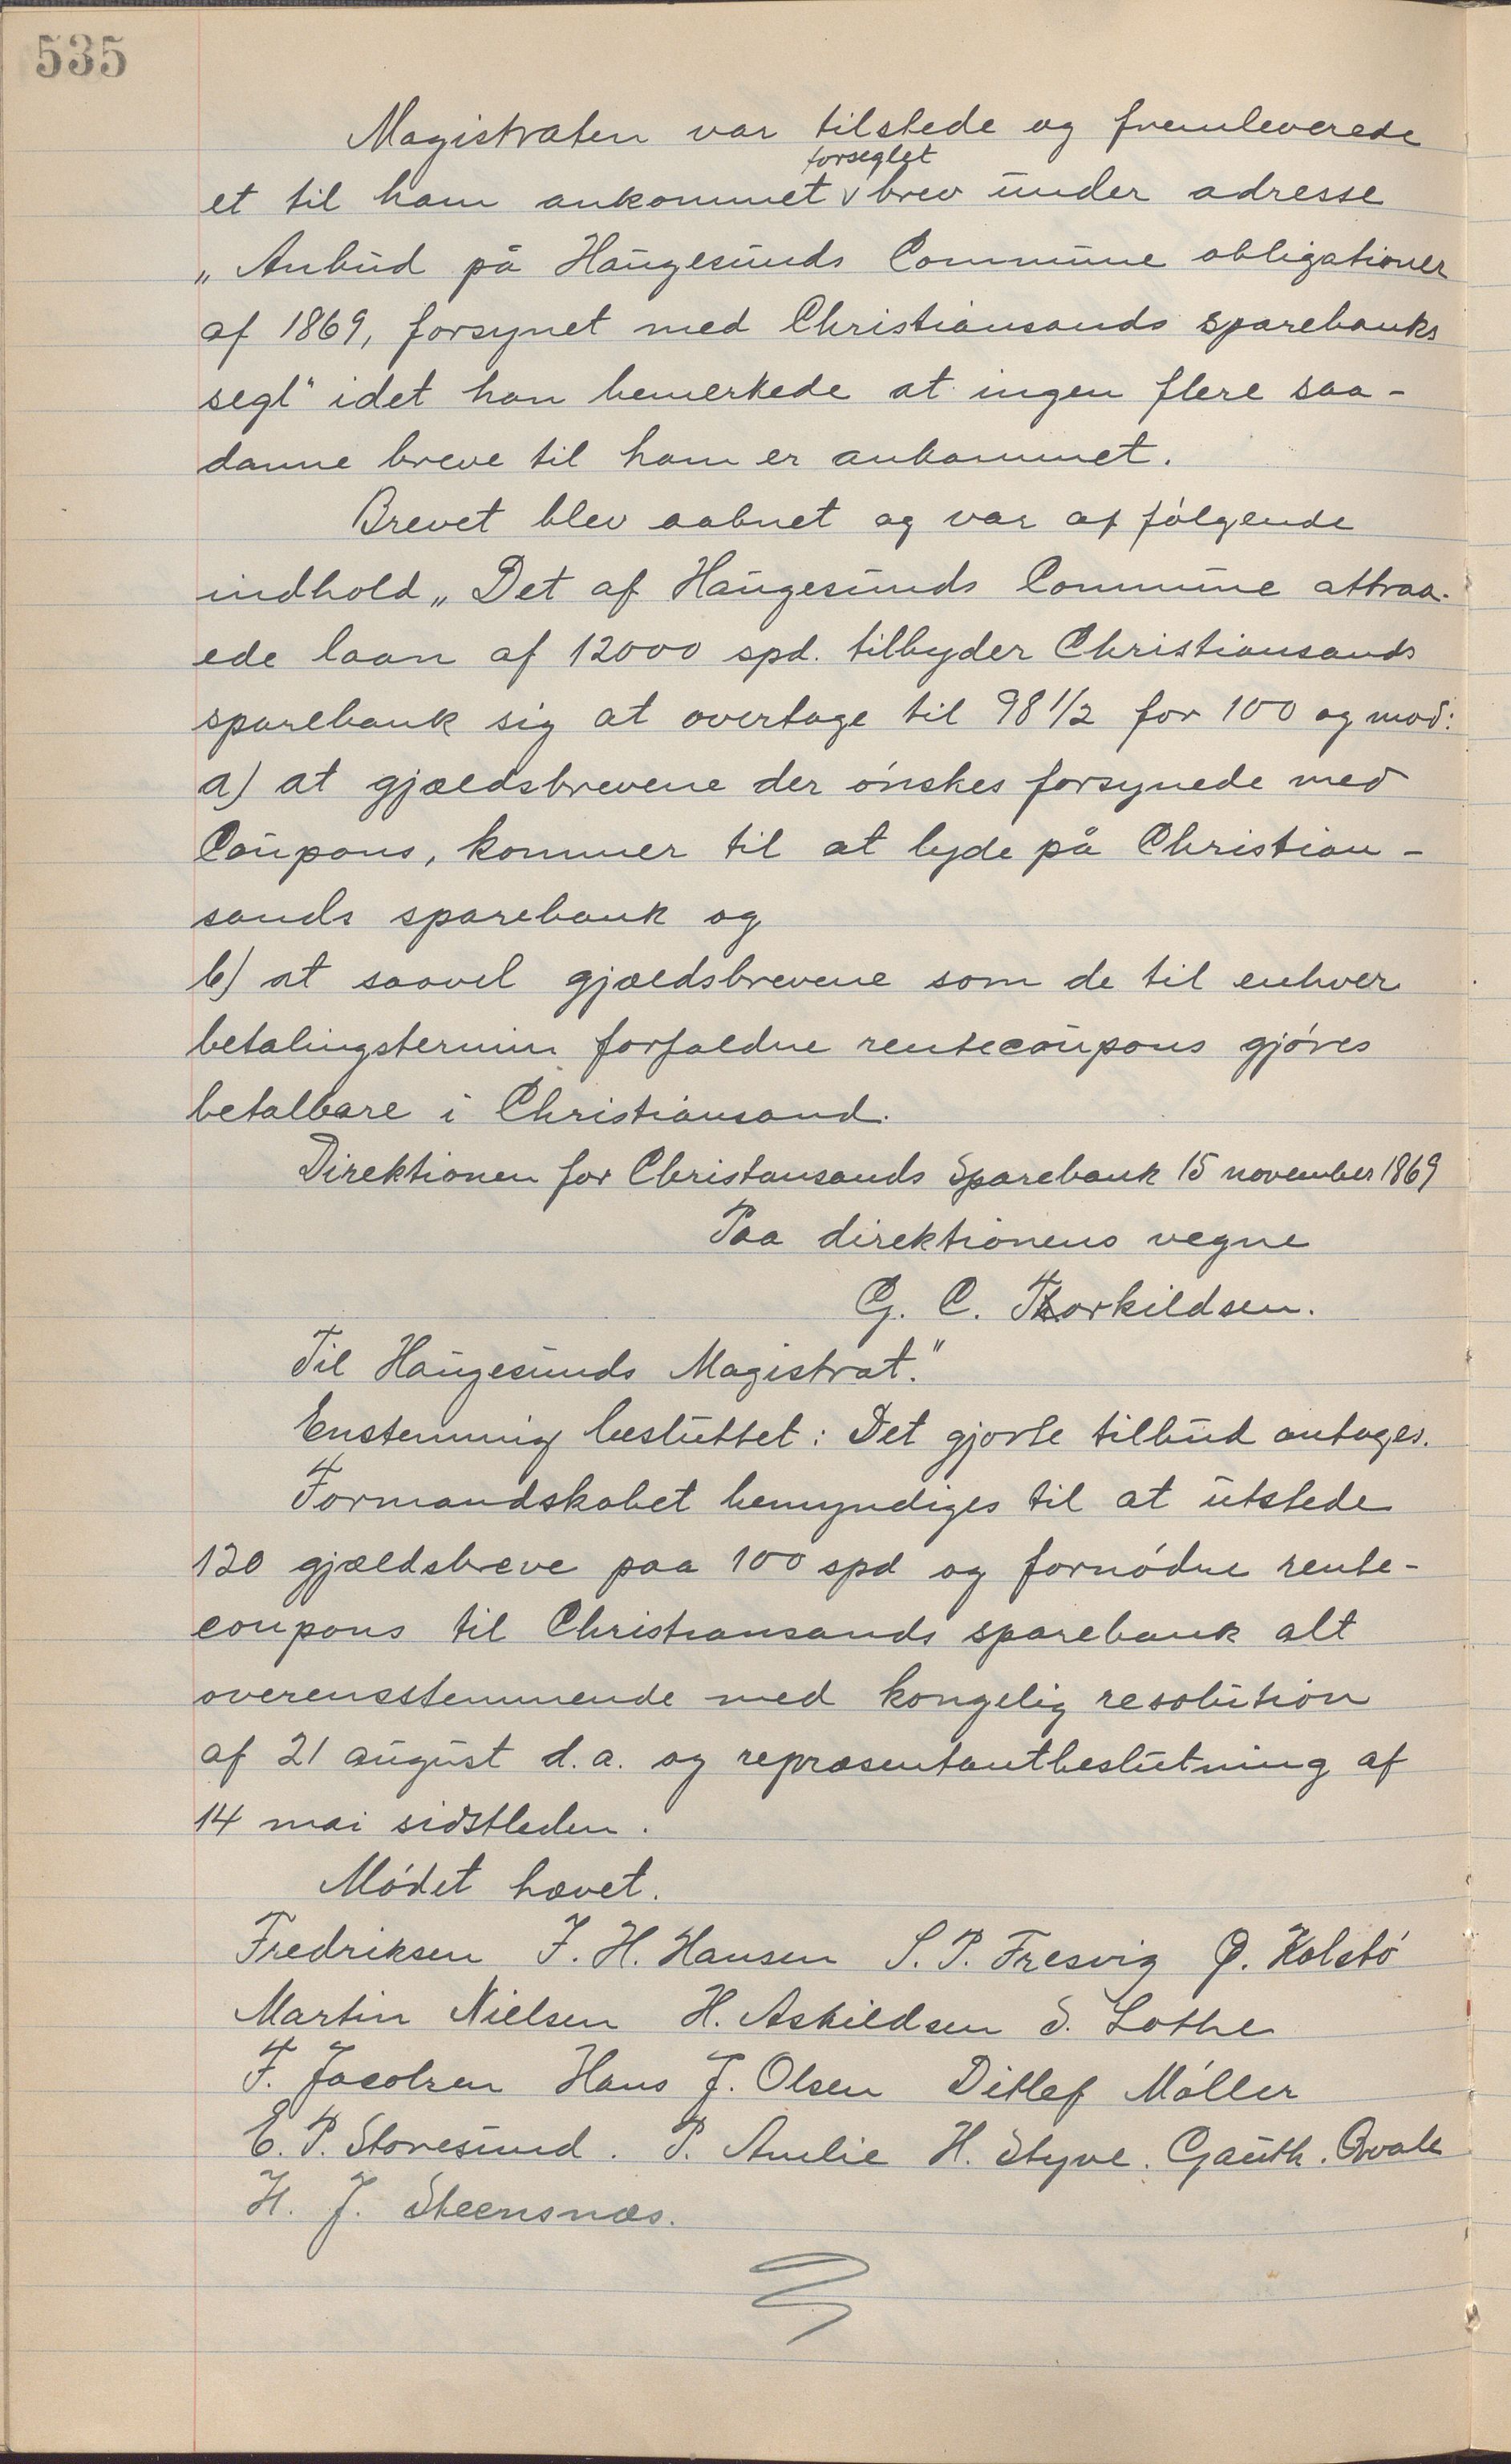 535
Magistraten var tilstede og fremleverede
et til ham ankommet forseglet brev under adresse
„Anbud på Haugesunds Commune obligationer
af 1869, forsynet med Christiansands sparebanks
segl" idet han bemerkede at ingen flere saa-
danne breve til ham er ankommet.
Brevet blev aabnet og var af følgende
indhold „Det af Haugesunds Commune attraa-
ede laan af 12000 spd. tilbyder Christiansands
sparebank sig at overtage til 98 1/2 for 100 og mod:
a) at gjældsbrevene der ønskes forsynede med
Coupons, kommer til at lyde på Christian-
sands sparebank og
b) at saavel gjældsbrevene som de til enhver
betalingstermin forfaldne rentecoupons gjøres
betalbare i Christiansand.
Direktionen for Christansands Sparebank 15 november 1869
Paa direktionens vegne
G. C. Thorkildsen.
Til Haugesunds Magistrat."
Enstemmig besluttet: Det gjorte tilbud antages.
Formandskabet bemyndiges til at utstede
120 gjældsbreve paa 100 spd og fornødne rente-
coupons til Christiansands sparebank alt
overensstemmende med kongelig resolution
af 21 august d.a. og repræsentantbeslutning af
14 mai sidstleden.
Mødet hævet.
Fredriksen J. H. Hansen S. P. Fresvig Ø. Kolstø
Martin Nielsen H. Askildsen S. Lothe
F. Jacobsen Hans J. Olsen Ditlef Møller
E. P. Storesund. P. Amlie H. Styve. Gauth. Qvale
H. J. Steensnæs.